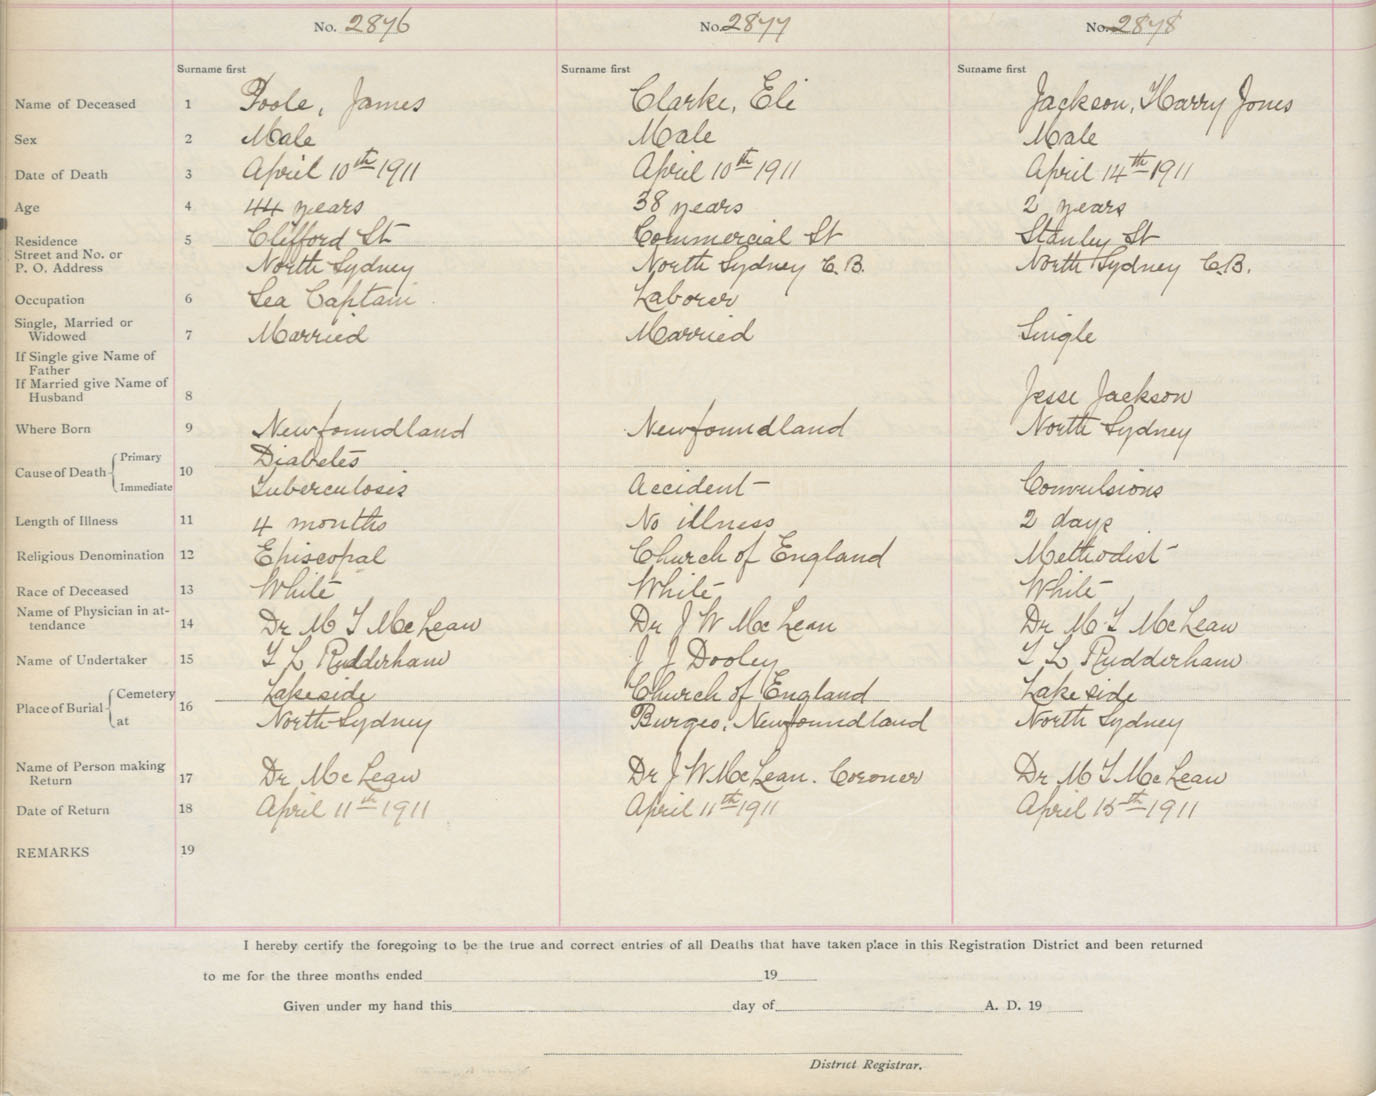 No. 2876 No. 2877 No. 2878
Surname first Surname first Surname first
Name of Deceased 1 Poole, James Clarke, Eli Jackson, Harry Jones
Sex 2 Male Male Male
Date of Death 3 April 10th 1911 April 10th 1911 April 14th 1911
Age 4 44 years 38 years 2 years
Residence 5 Clifford St Commercial St Stanley St
Street and No. or
P. O. Address North Sydney North Sydney C.B. North Sydney C.B.
Occupation 6 Sea Captain Laborer
Single, Married or
Widowed 7 Married Married Single
If Single give Name of
Father
If Married give Name of
Husband 8 Jesse Jackson
Where Born 9 Newfoundland Newfoundland North Sydney
Primary Diabetes
Cause of Death 10
Immediate Tuberculosis Accident Convulsions
Length of Illness 11 4 months No illness 2 days
Religious Denomination 12 Episcopal Church of England Methodist
Race of Deceased 13 White White White
Name of Physician in at-
tendance 14 Dr M T McLean Dr J W McLean Dr M T McLean
Name of Undertaker 15 T L Rudderham J J Dooley T L Rudderham
Cemetery Lakeside Church of England Lakeside
Place of Burial 16
at North Sydney Burgeo, Newfoundland North Sydney
Name of Person making
Return 17 Dr McLean Dr J W McLean. Coroner Dr M T McLean
Date of Return 18 April 11th 1911 April 11th 1911 April 15th 1911
REMARKS 19
I hereby certify the foregoing to be the true and correct entries of all Deaths that have taken place in this Registration District and been returned
to me for the three months ended 19
Given under my hand this day of A. D. 19
District Registrar.